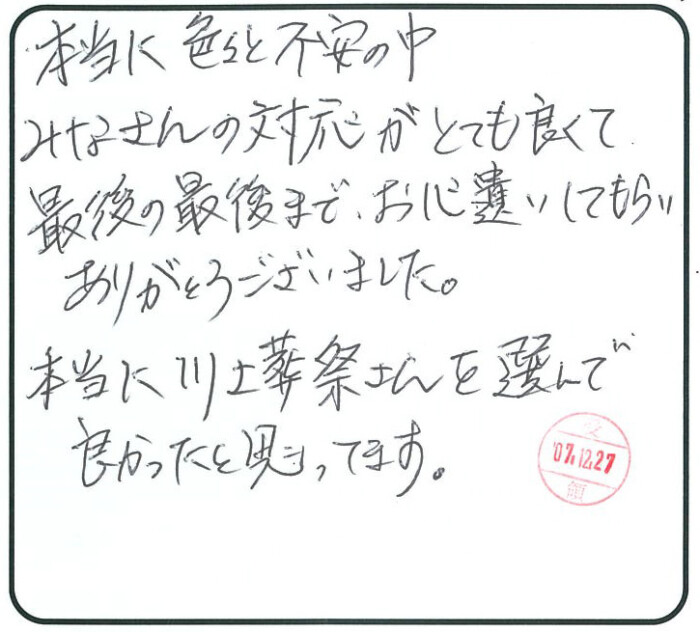 本当に色々と不安の中
みなさんの対応がとても良くて
最後の最後まで、お心遣いしてもらい
ありがとうございました。
本当に川上葬祭さんを選んで
良かったと思ってます。
受
'07.12.27
領